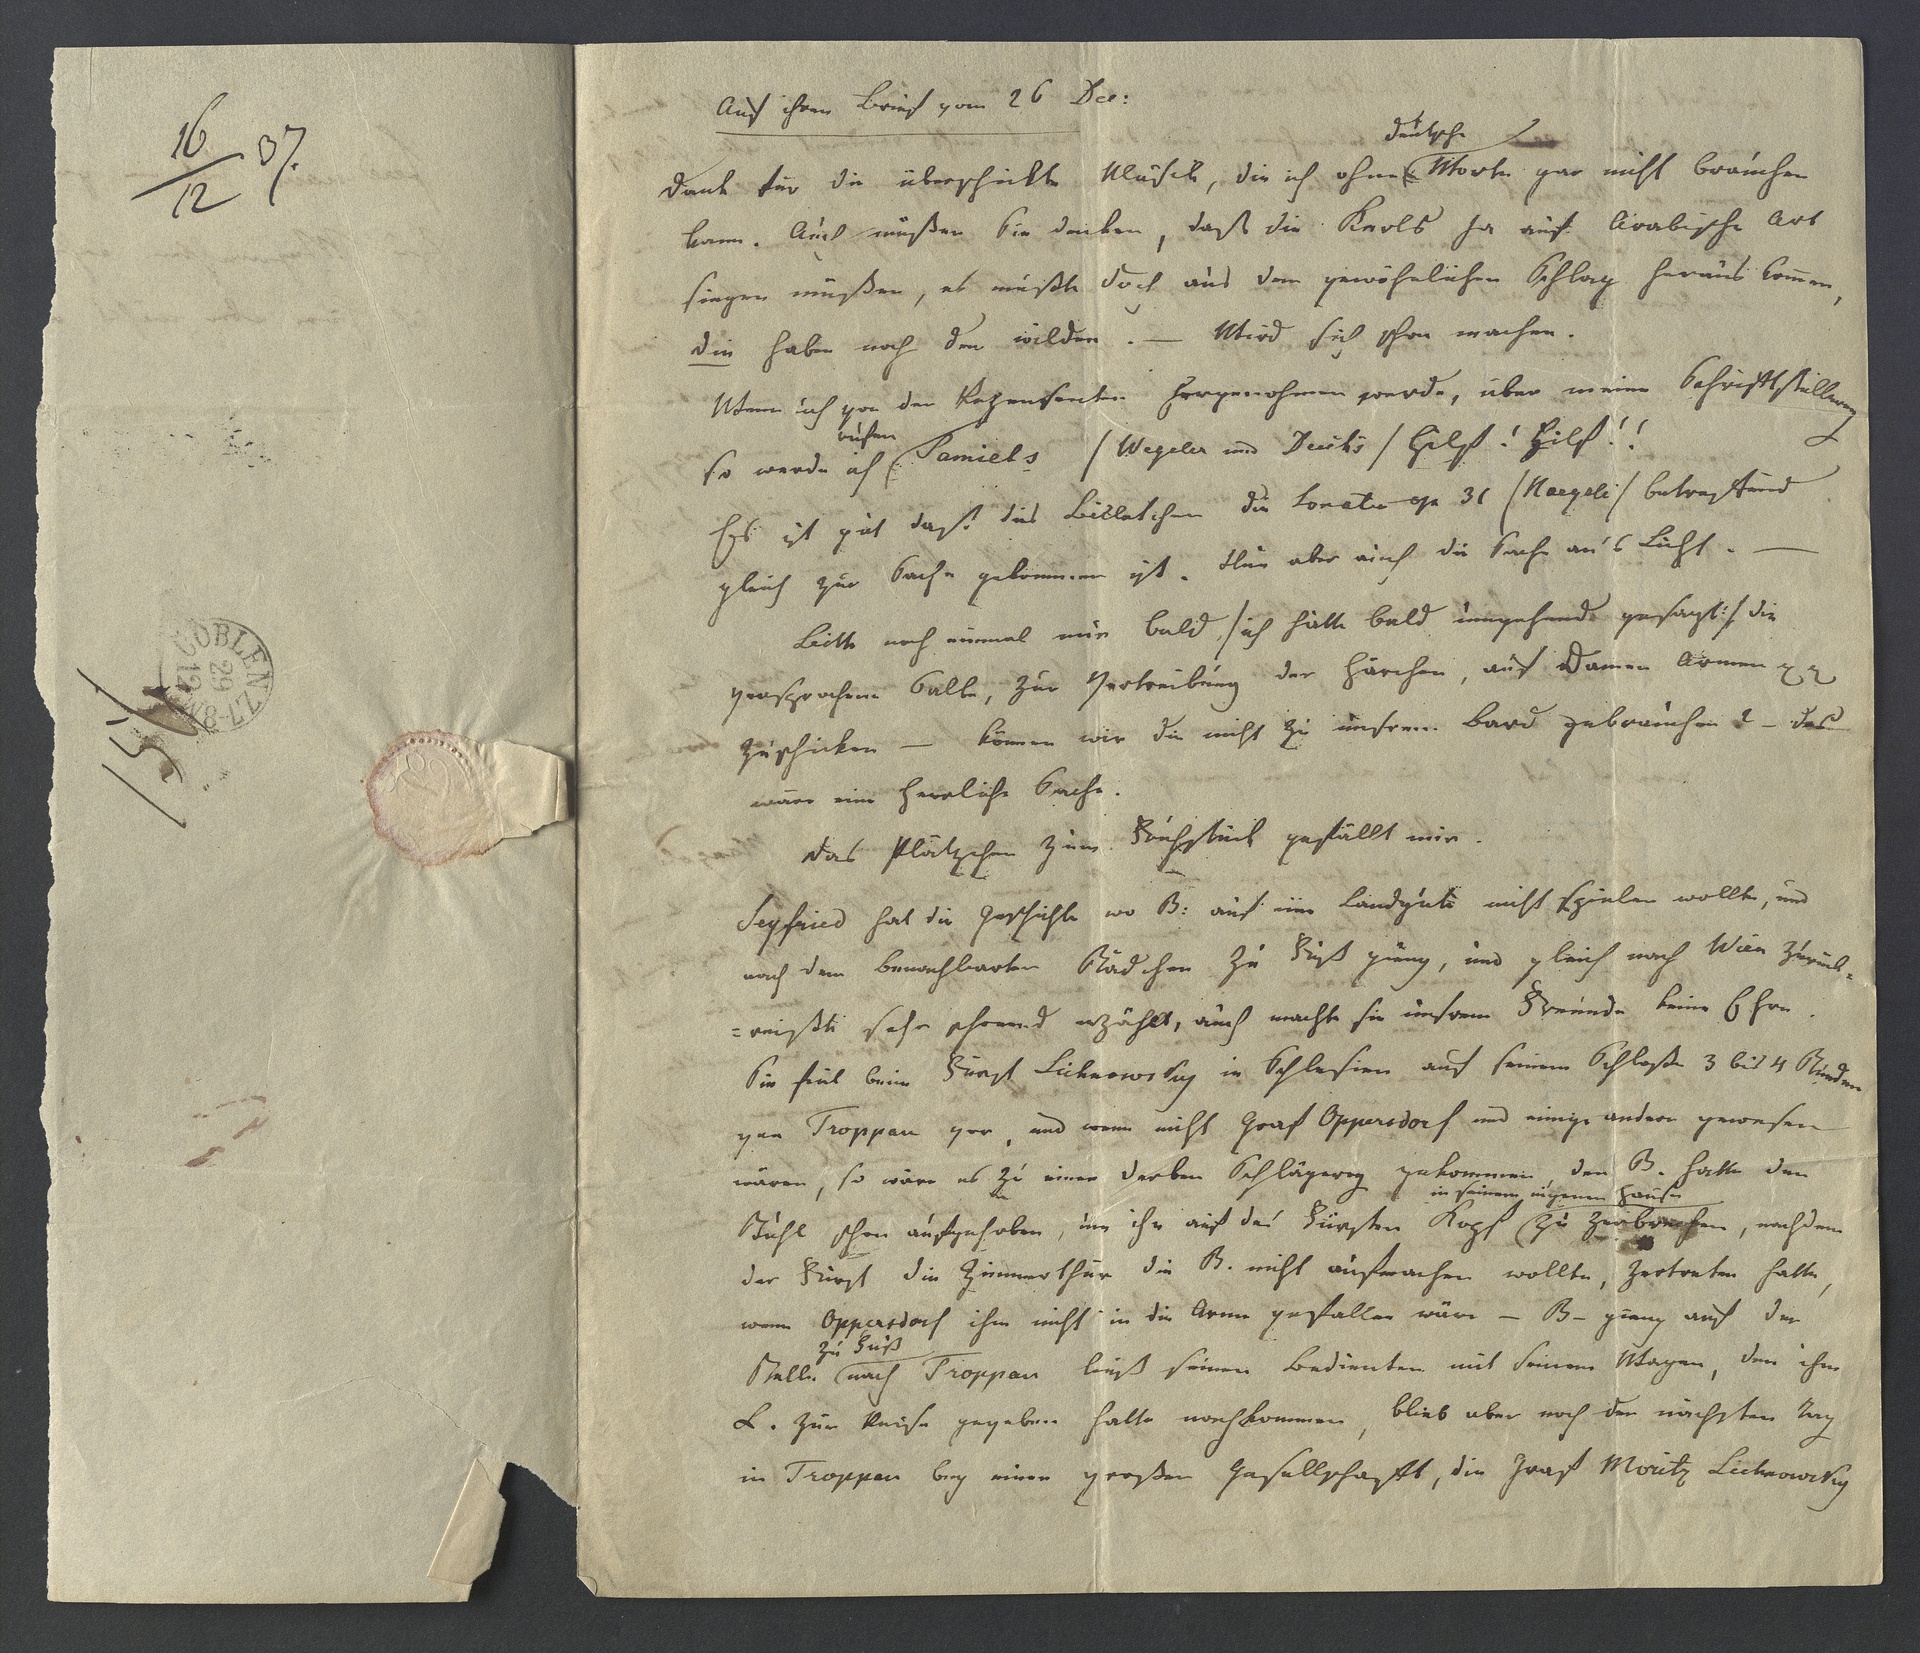 16/12 37.
COBLENZ
29
12
7-8
15/
Auf ihren Brief vom 26 Dec:
deutsche
Dank für die überschickte Musick, die ich ohne Worte gar nicht brauchen
kann. Auch müßen Sie denken, daß die Kerls ja auf Arabische Art
singen müßen, es müßte doch aus dem gewöhnlichen Schlag heraus komen,
die haben noch den wilden. — Wird sich schon machen.
Wenn ich von den Rezensenten hergenohmen werde, über meine Schriftstellerey
rufen
so werde ich Samiels /Wegeler und Deiters/ Hilf! Hilf!!
Es ist gut daß das Billetchen die Sonate op 31 /Naegeli/ betreffend
gleich zur Sache gekommen ist. Nur aber auch die Sache an's Licht. —
Bitte noch einmal mir bald /ich hätte bald umgehend gesagt:/ die
versprochene Salbe, zur Vertreibung der Härchen, auf Damen Armen
zuschicken — können wir die nicht zu unsrem Bard gebrauchen? — das
wäre eine herrliche Sache.
Das Plätzchen zum Frühstück gefällt mir.
Seyfried hat die Geschichte wo B: auf ein Landgute nicht spielen wollte, und
nach dem benachbarten Städchen zu Fuß gieng, und gleich nach Wien zurück=
=reißte sehr schonend erzählt, auch machte sie unsrem Freunde keine Ehre.
Sie fiel beim Fürst Lichnowsky in Schlesien auf seinem Schloße 3 bis 4 Stunden
von Troppau vor, und wenn nicht Graf Oppersdorf und einige andere gewesen
wären, so wäre es zu einer derben Schlägerey gekommen, den B. hatte den
in seinem eigenen Hause
Stuhl schon aufgehoben, um ihn auf des Fürsten Kopf zu zerbrechen, nachdem
der Fürst die Zimmerthür die B. nicht aufmachen wollte, zertreten hatte,
wenn Oppersdorf ihm nicht in die Arme gefallen wäre — B— gieng auf der
zu Fuß
Stelle nach Troppau ließ seinen Bedienten mit seinem Wagen, den ihm
L. zur Reise gegeben hatte nachkommen, blieb aber noch den nächsten Tag
in Troppau bey einer großen Gesellschafft, die Graf Moritz Lichnowsky